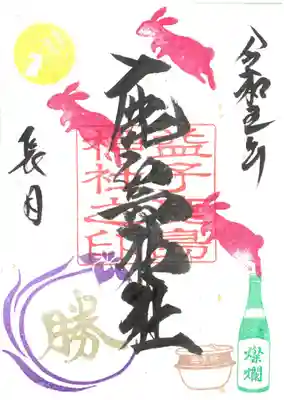 令和五年
鹿島神社
益子鹿島
神社之印
長月
勝
燦爛